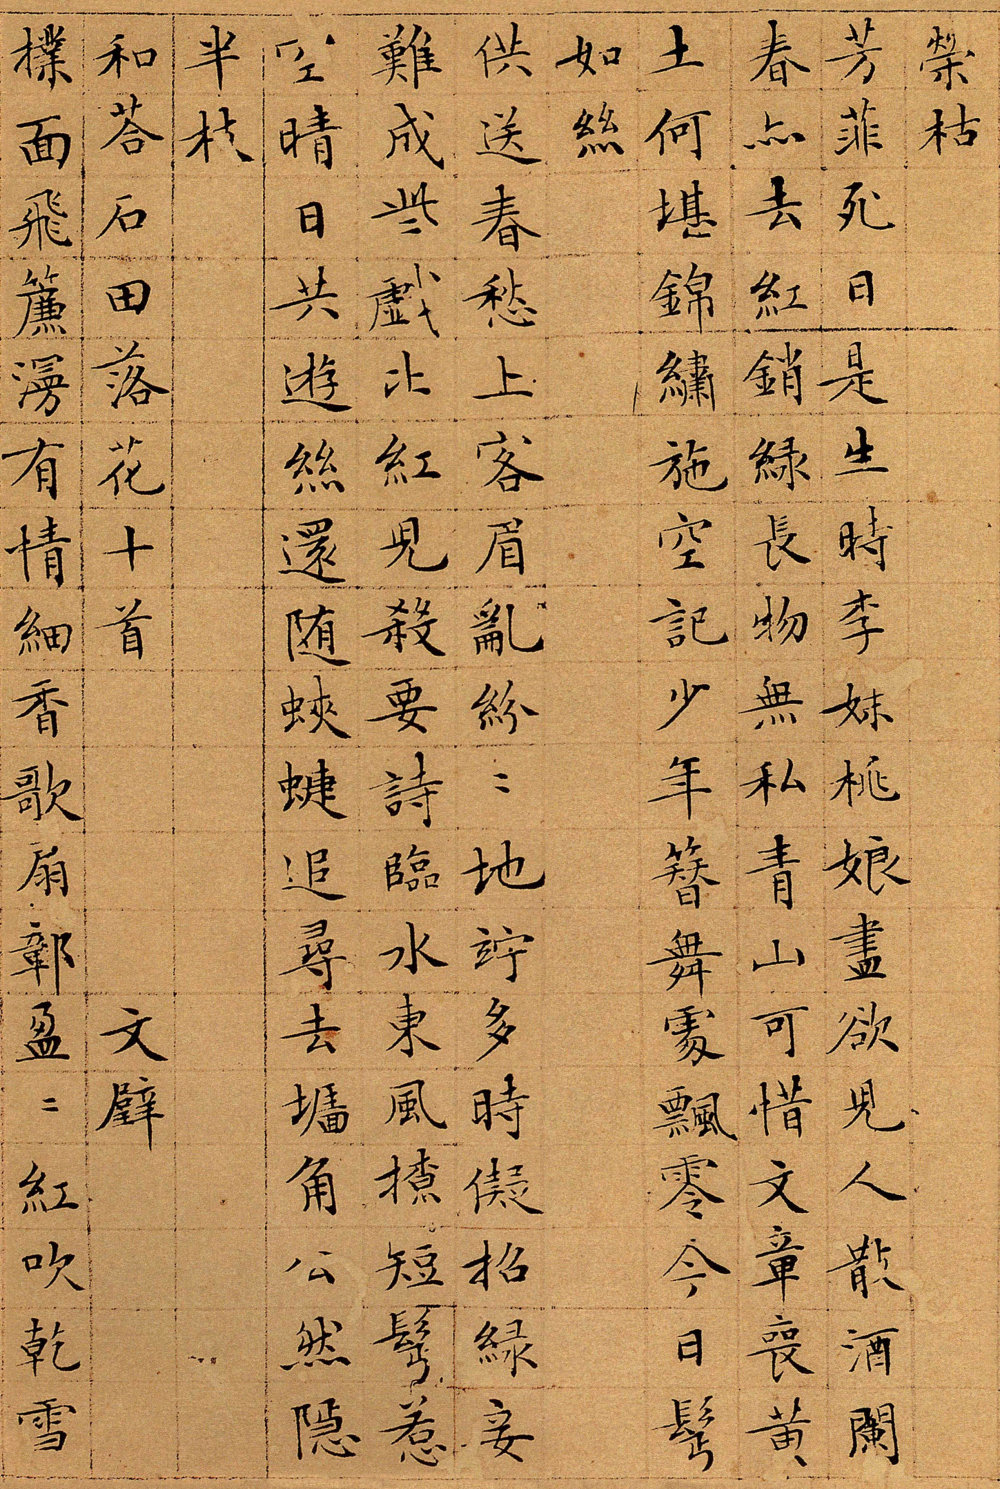 榮枯
芳菲死日是生時李妹桃娘盡欲兒人散酒闌
春亦去紅銷綠長物無私青山可惜文章喪黃
土何堪錦繡施空記少年簪舞處飄零今日鬢
如絲
供送春愁上客眉亂紛〻地竚多時儗招綠妾
難成些戲比紅兒殺要詩臨水東風撩短鬢惹
空晴日共遊絲還随蛺蜨追尋去墻角公然隱
半枝
和荅石田落花十首 文壁
撲面飛簾漫有情細香歌扇鄣盈〻紅吹乾雪